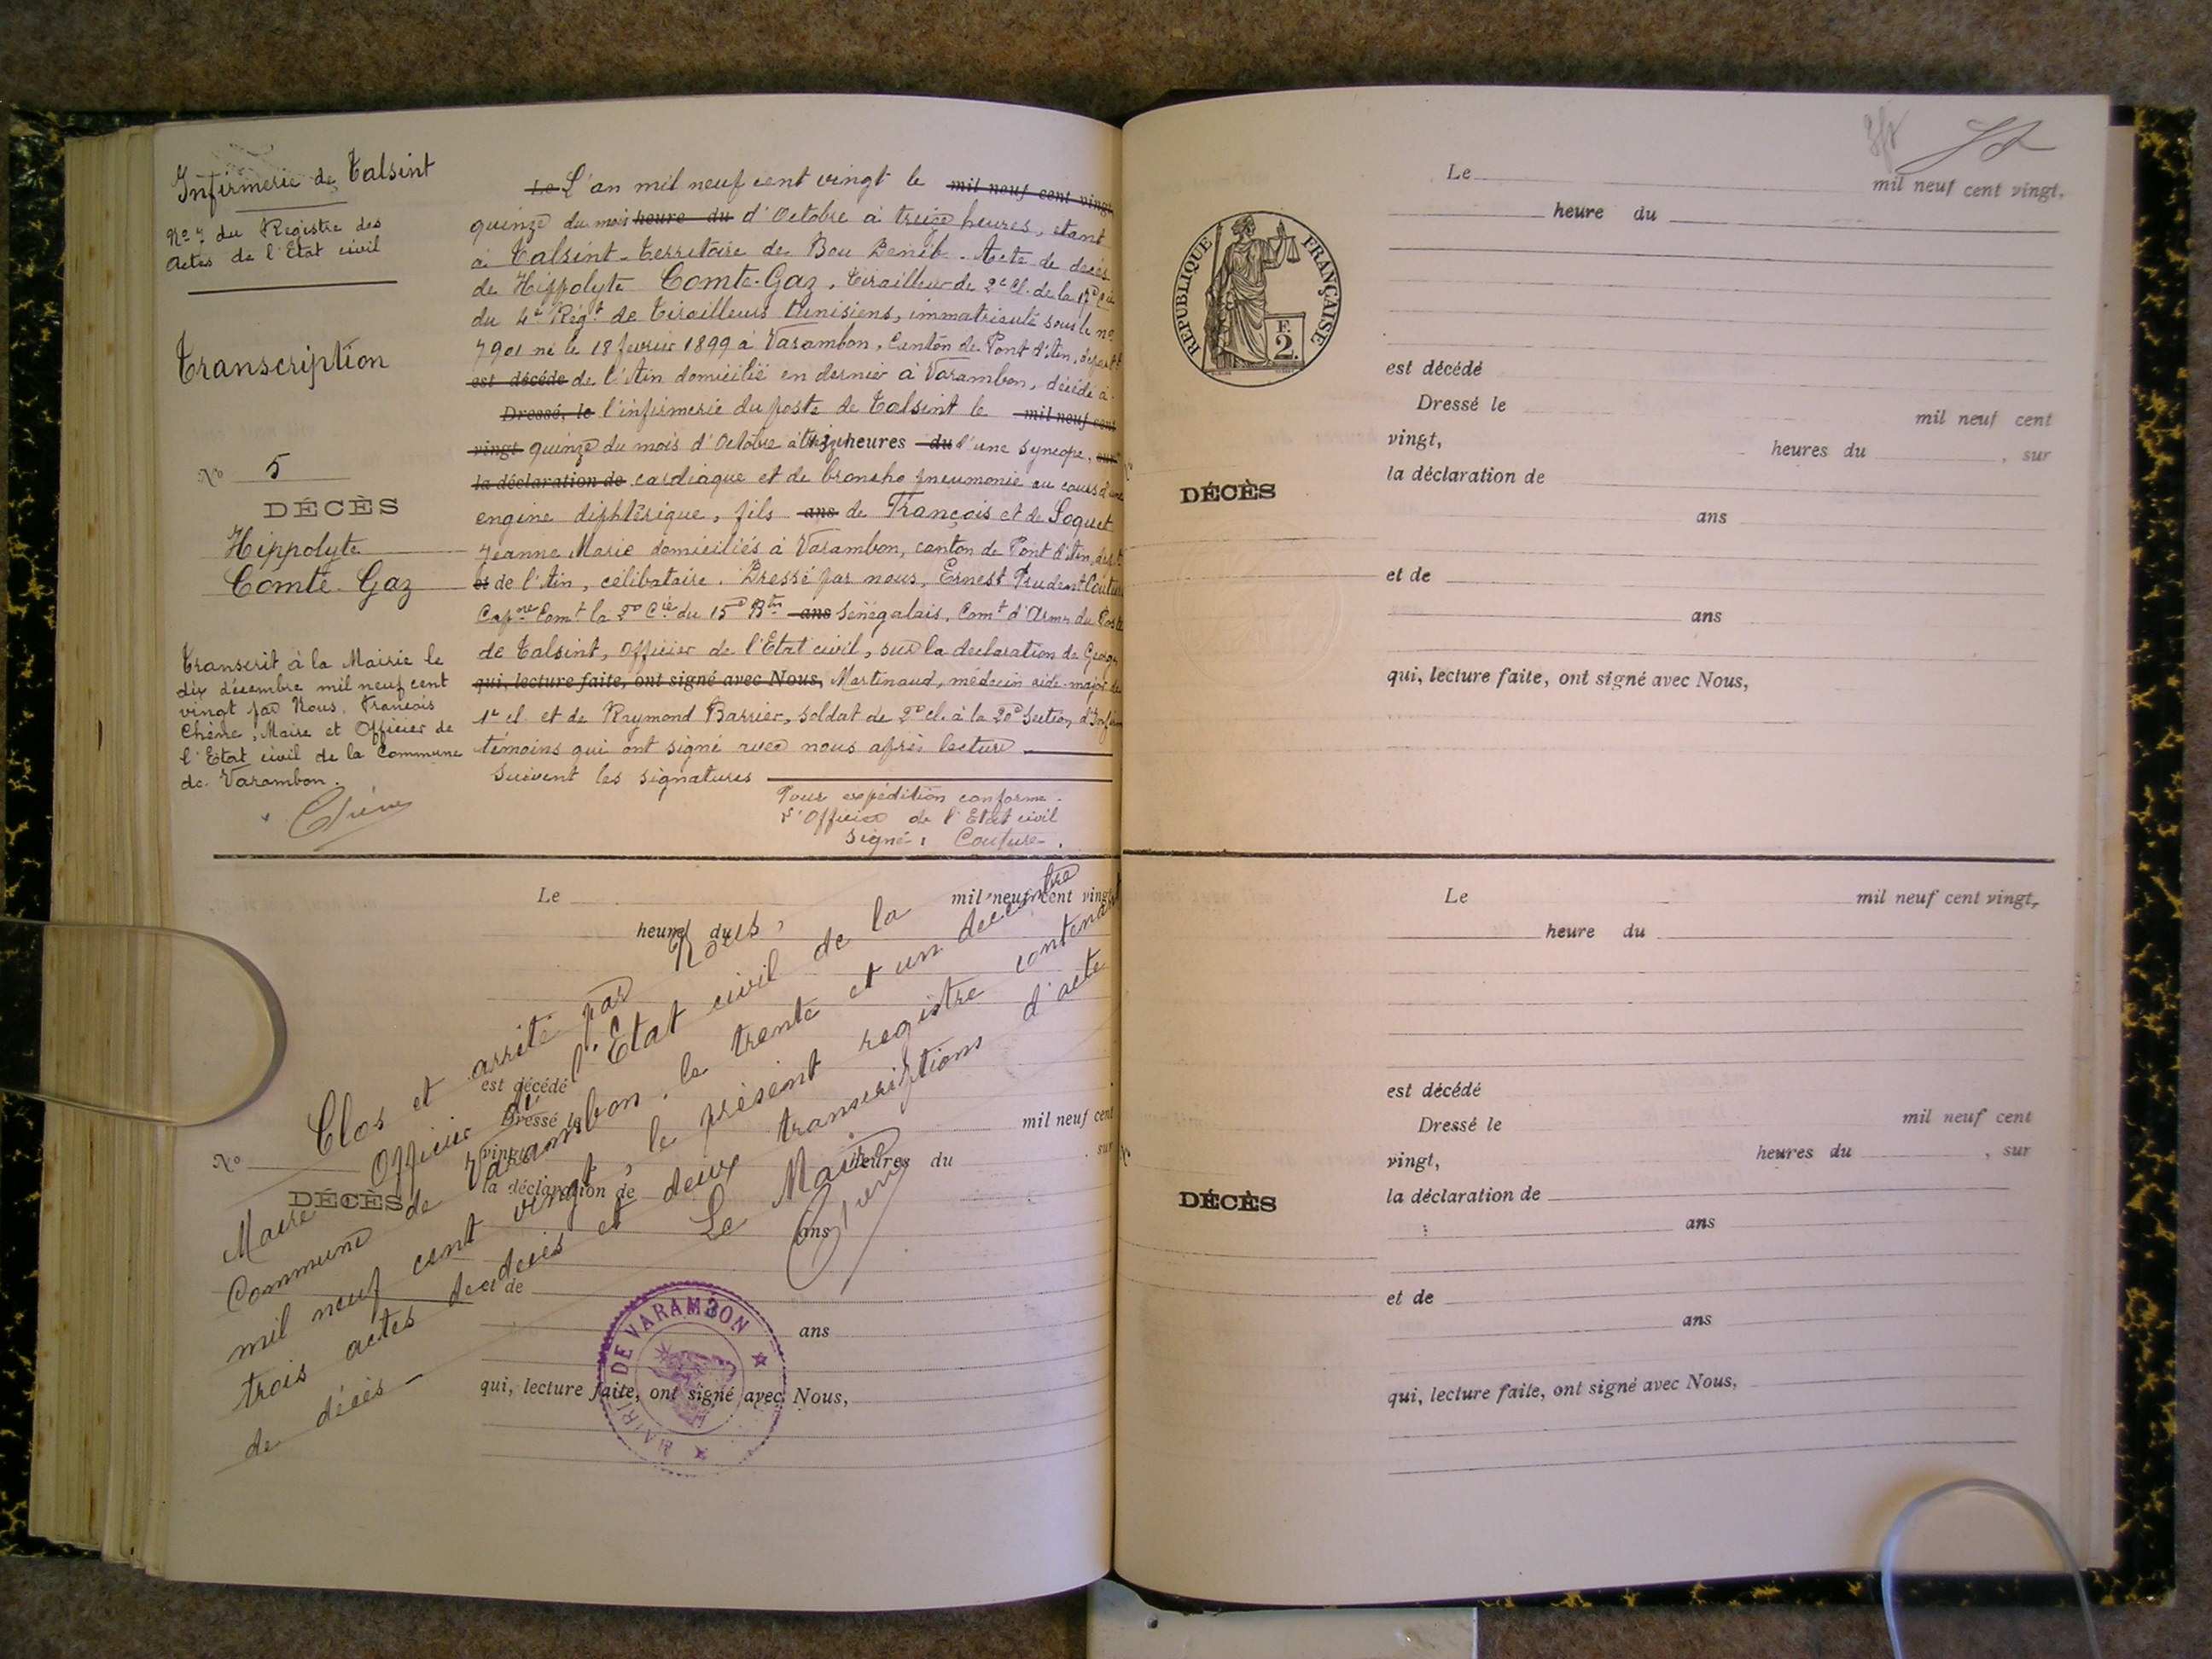 Infirmerie de Talsint
No 7 du Registre des
Actes de l'Etat civil
Transcription
No 5
DÉCÈS
Hippolyte
Comte-Gaz
Transcrit à la Mairie le
dix décembre mil neuf cent
vingt par Nous, François
Chêne, Maire et Officier de
l'Etat civil de la Commune
de Varambon.
Chêne
Le L'an mil neuf cent vingt le mil neuf cent vingt
quinze du mois heure du d'Octobre à treize heures, étant
à Talsint - territoire de Bou Denib - Acte de décès
de Hippolyte Comte-Gaz, tirailleur de 2e Cl. de la
du 4e Régt de Tirailleurs tunisiens, immatriculé sous le no
7901 né le 18 février 1899 à Varambon, Canton de Pont d'Ain, départt
est décédé de l'Ain domicilié en dernier à Varambon, décédé à
Dressé, le l'infirmerie du poste de Talsint le mil neuf cent
vingt quinze du mois d'Octobre à treize heures du d'une syncope, sur
la déclaration de cardiaque et de broncho pneumonie au cours d'une
engine diphtérique, fils ans de François et de Soquet
Jeanne Marie domiciliés à Varambon, canton de Pont d'Ain, dépt
et de l'Ain, célibataire. Dressé par nous, Ernest Prudent Couture
Capne Comt la 2e Cie du 15e Btn ans Sénégalais, Comt d'Armes du Poste
de Talsint, Officier de l'Etat civil, sur la déclaration de Georges
qui, lecture faite, ont signé avec Nous, Martinaud, médecin aide-major de
1e cl. et de Raymond Barrier, soldat de 2e cl. à la 20e Section d'Infirm
témoins qui ont signé avec nous après lecture.
Suivent les signatures
Pour expédition conforme.
L'Officier de l'Etat civil
Signé : Couture.
Le mil neuf cent vingt
heure du
est décédé
Dressé le mil neuf cent
vingt, heures du , sur
No
DÉCÈS
la déclaration de
ans
et de
ans
qui, lecture faite, ont signé avec Nous,
Clos et arrêté par Nous,
Maire Officier de l'Etat civil de la
Commune de Varambon, le trente et un décembre
mil neuf cent vingt, le présent registre contenant
trois actes de décès et deux transcriptions d'acte
de décès -
Le Maire
Chêne
MAIRIE DE VARAMBON
REPUBLIQUE FRANÇAISE
F.
2.
Le mil neuf cent vingt,
heure du
est décédé
Dressé le mil neuf cent
vingt, heures du , sur
la déclaration de
DÉCÈS
ans
et de
ans
qui, lecture faite, ont signé avec Nous,
Le mil neuf cent vingt,
heure du
est décédé
Dressé le mil neuf cent
vingt, heures du , sur
la déclaration de
DÉCÈS
ans
et de
ans
qui, lecture faite, ont signé avec Nous,